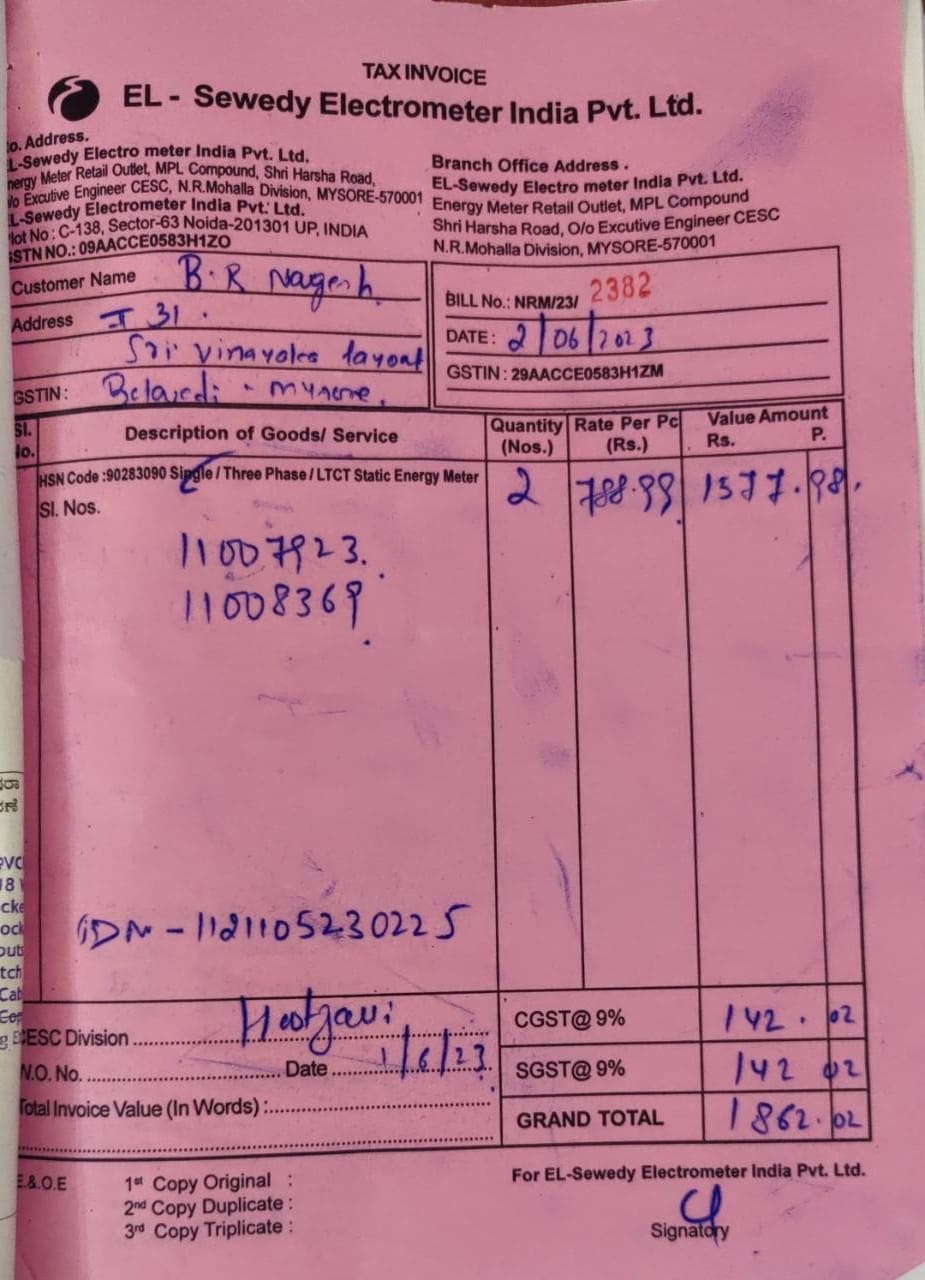 TAX INVOICE
EL - Sewedy Electrometer India Pvt. Ltd.
o. Address.
L-Sewedy Electro meter India Pvt. Ltd.
nergy Meter Retail Outlet, MPL Compound, Shri Harsha Road,
/o Excutive Engineer CESC, N.R.Mohalla Division, MYSORE-570001
L-Sewedy Electrometer India Pvt. Ltd.
lot No : C-138, Sector-63 Noida-201301 UP, INDIA
GSTN NO.: 09AACCE0583H1ZO
Branch Office Address .
EL-Sewedy Electro meter India Pvt. Ltd.
Energy Meter Retail Outlet, MPL Compound
Shri Harsha Road, O/o Excutive Engineer CESC
N.R.Mohalla Division, MYSORE-570001
Customer Name B.R Nagesh
Address I 31.
Sri Vinayaka layout
GSTIN: - mysore.
BILL No.: NRM/23/ 2382
DATE: 2/06/2023
GSTIN : 29AACCE0583H1ZM
Sl. No. Description of Goods/ Service Quantity (Nos.) Rate Per Pc (Rs.) Value Amount Rs. P.
HSN Code :90283090 Single / Three Phase / LTCT Static Energy Meter 2 788.99 1577.98.
Sl. Nos.
11007923.
11008369
- 1121105230225
CESC Division
W.O. No. Date 1/6/23
Total Invoice Value (In Words) :
CGST@ 9% 142.02
SGST@ 9% 142 02
GRAND TOTAL 1862.02
E.&.O.E
1st Copy Original :
2nd Copy Duplicate :
3rd Copy Triplicate :
For EL-Sewedy Electrometer India Pvt. Ltd.
Signatory